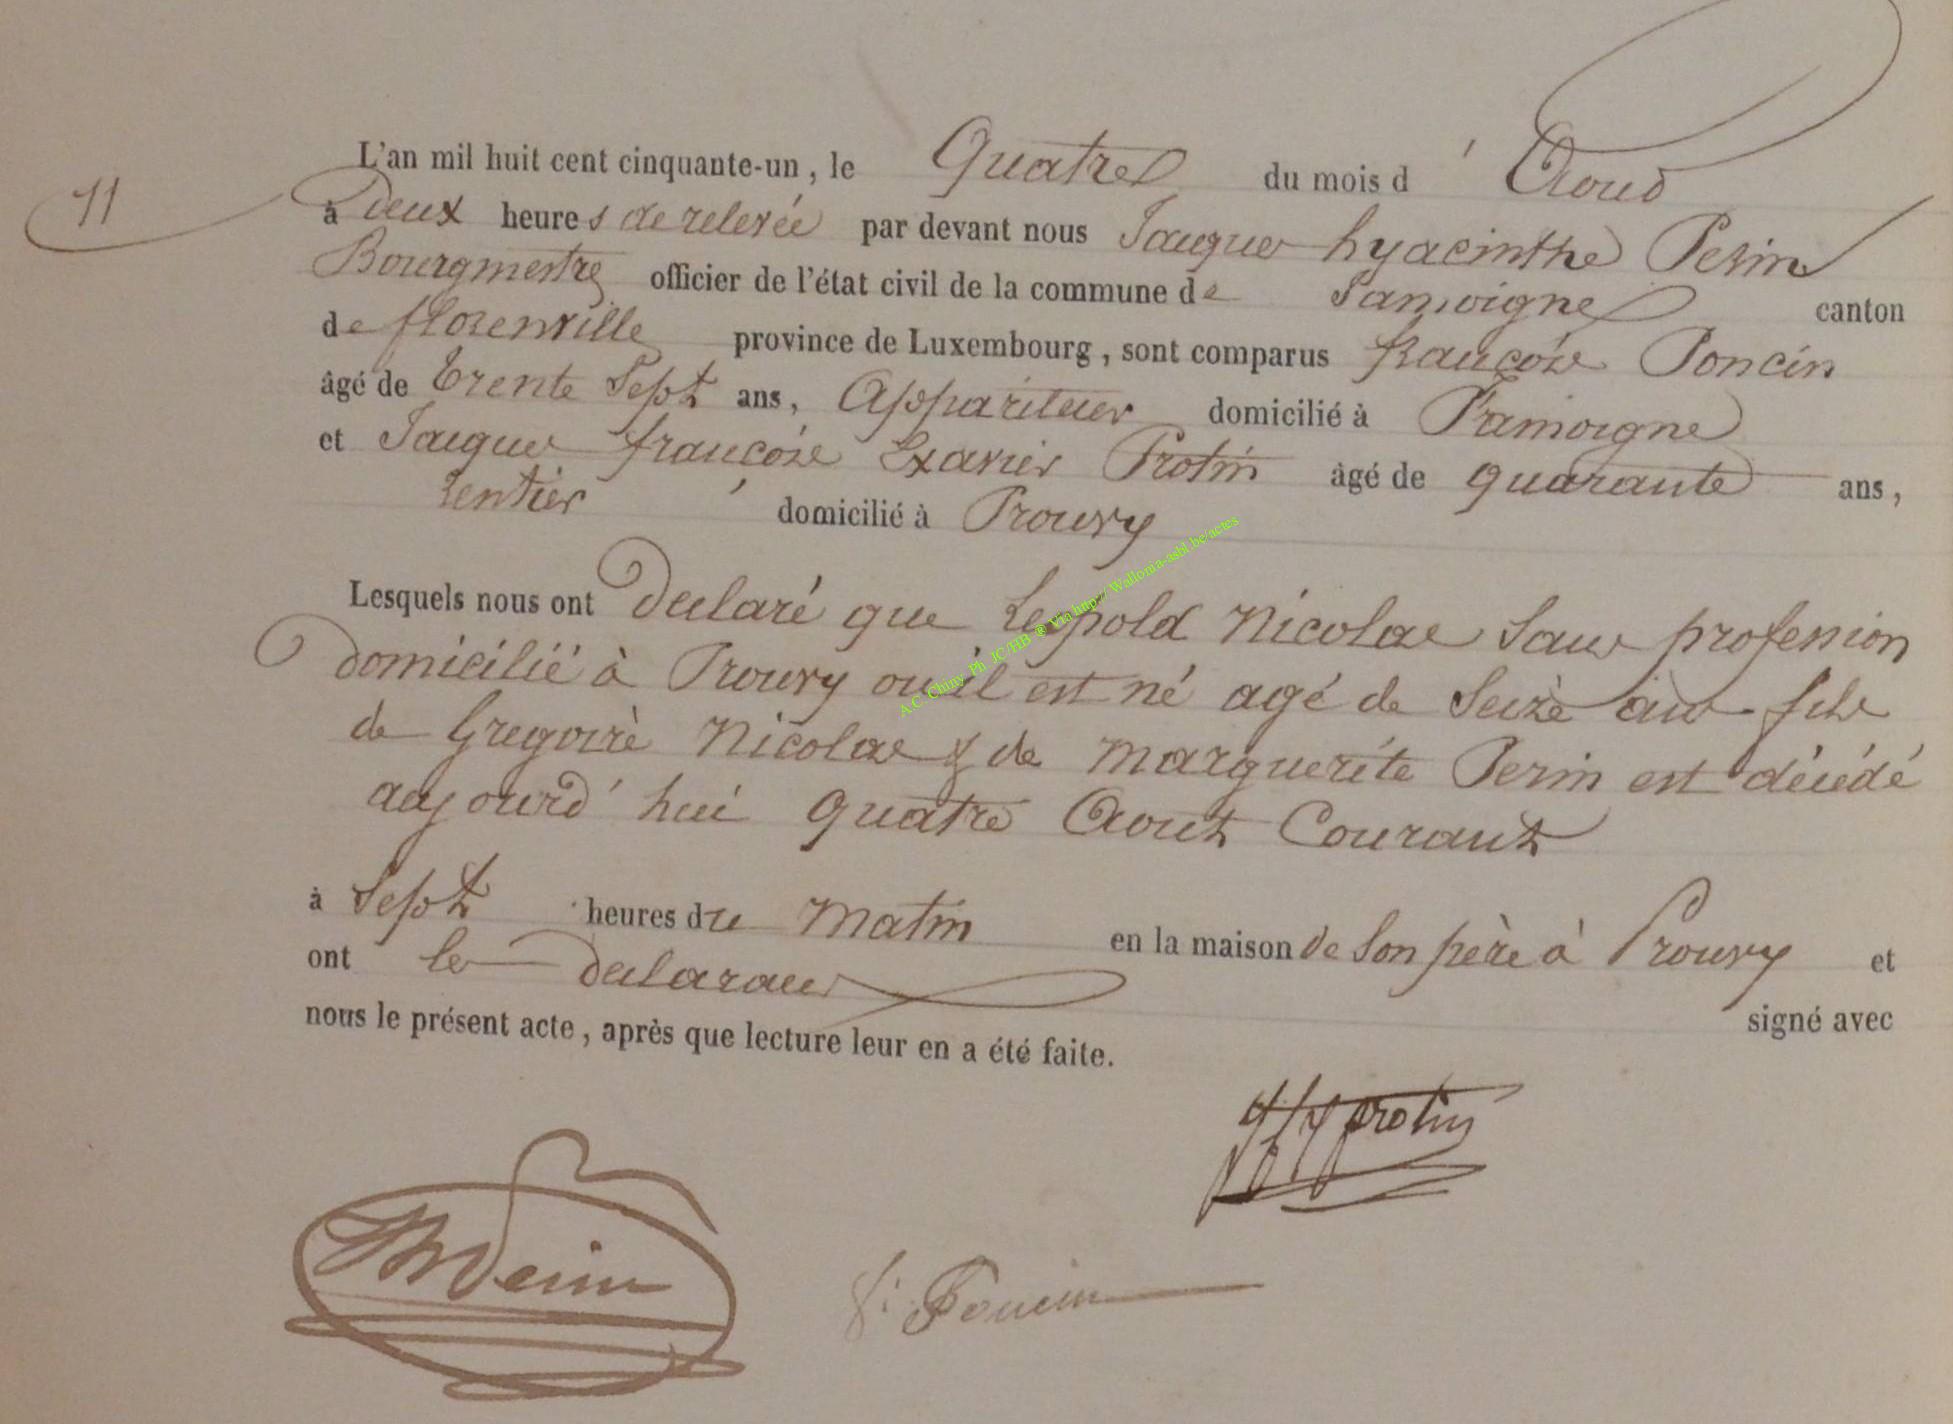 11
L'an mil huit cent cinquante-un, le Quatre du mois d'Aoud
à deux heures de relevée par devant nous Jacques hyacinthe Perin
Bourgmestre officier de l'état civil de la commune de Jamoigne canton
de florenville province de Luxembourg, sont comparus françois Poncin
âgé de trente Sept ans, Appariteur domicilié à Jamoigne
et Jacques françois Xavier Protin âgé de quarante ans,
rentier domicilié à Prouvy
Lesquels nous ont declaré que Leopold Nicolas Sans profession
domicilié à Prouvy ou il est né agé de Seize ans fils
de Gregoire Nicolas & de Marguerite Perin est décédé
aujourd'hui quatre Aout Courant
à Sept heures du Matin en la maison de Son père à Prouvy et
ont les declarans signé avec
nous le présent acte, après que lecture leur en a été faite.
protin
Perin
f: Poncin
A.C. Chiny Ph JC/HB ® Via http://Wallonia-asbl.be/actes